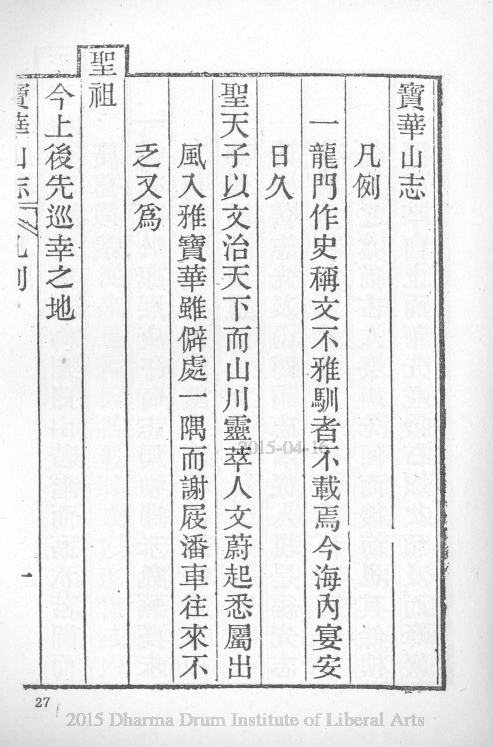 寶華山志
凡例
一龍門作史稱文不雅馴者不載焉今海內宴安
日久
聖天子以文治天下而山川靈萃人文蔚起悉屬出
風入雅寶華雖僻處一隅而謝屐潘車往來不
乏又為
聖祖
今上後先巡幸之地
寶華山志 凡例
一
27
2015-04-16
2015 Dharma Drum Institute of Liberal Arts